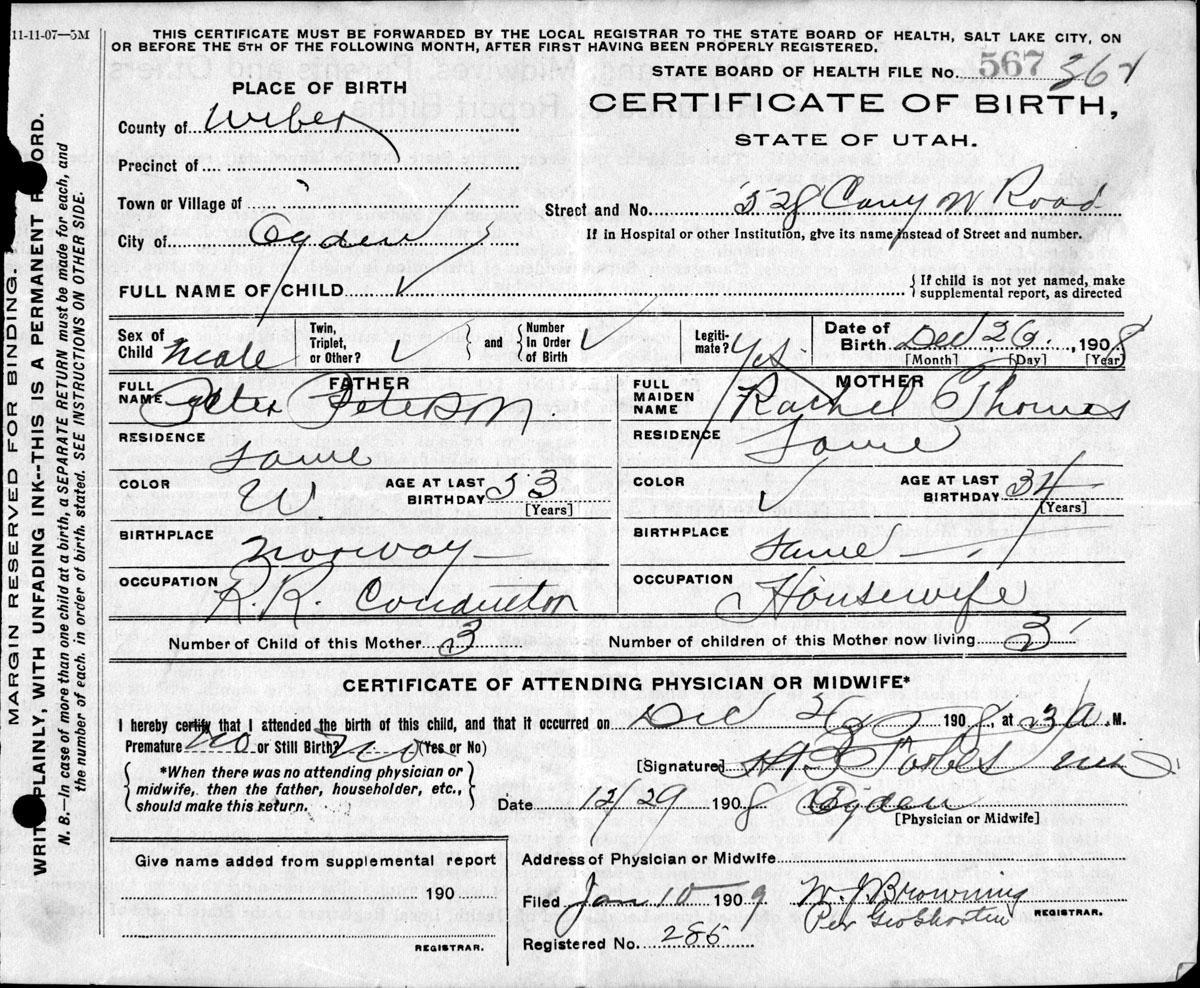 11-11-07—5M
THIS CERTIFICATE MUST BE FORWARDED BY THE LOCAL REGISTRAR TO THE STATE BOARD OF HEALTH, SALT LAKE CITY, ON
OR BEFORE THE 5TH OF THE FOLLOWING MONTH, AFTER FIRST HAVING BEEN PROPERLY REGISTERED.
STATE BOARD OF HEALTH FILE No. 567
PLACE OF BIRTH
CERTIFICATE OF BIRTH,
STATE OF UTAH.
County of Weber
Precinct of
Town or Village of
Street and No. 528 Cany n Road
City of Ogden
If in Hospital or other Institution, give its name instead of Street and number.
FULL NAME OF CHILD
{ If child is not yet named, make
supplemental report, as directed
Sex of Child Male
Twin, Triplet, or Other?
and
Number In Order of Birth
Legiti-mate? Yes
Date of Birth Dec 26, 1908
[Month] [Day] [Year]
FATHER
FULL NAME Peter Peterson.
RESIDENCE Same
COLOR W. AGE AT LAST BIRTHDAY 53
[Years]
BIRTHPLACE Norway
OCCUPATION R.R. Conductor
MOTHER
FULL MAIDEN NAME Rachel Thomas
RESIDENCE Same
COLOR AGE AT LAST BIRTHDAY 34
[Years]
BIRTHPLACE Same
OCCUPATION Housewife
Number of Child of this Mother 3
Number of children of this Mother now living 3
CERTIFICATE OF ATTENDING PHYSICIAN OR MIDWIFE*
I hereby certify that I attended the birth of this child, and that it occurred on Dec 26 1908, at 3 A. M.
Premature No or Still Birth? No (Yes or No)
*When there was no attending physician or
midwife, then the father, householder, etc.,
should make this return.
[Signature]
Date 12/29 1908 Ogden
[Physician or Midwife]
Give name added from supplemental report
190
REGISTRAR.
Address of Physician or Midwife
Filed Jan 10 1909 W. J. Browning
Per Geo Shorten REGISTRAR.
Registered No. 285
MARGIN RESERVED FOR BINDING.
WRITE PLAINLY, WITH UNFADING INK--THIS IS A PERMANENT RECORD.
N. B.—In case of more than one child at a birth, a SEPARATE RETURN must be made for each, and
the number of each, in order of birth, stated. SEE INSTRUCTIONS ON OTHER SIDE.